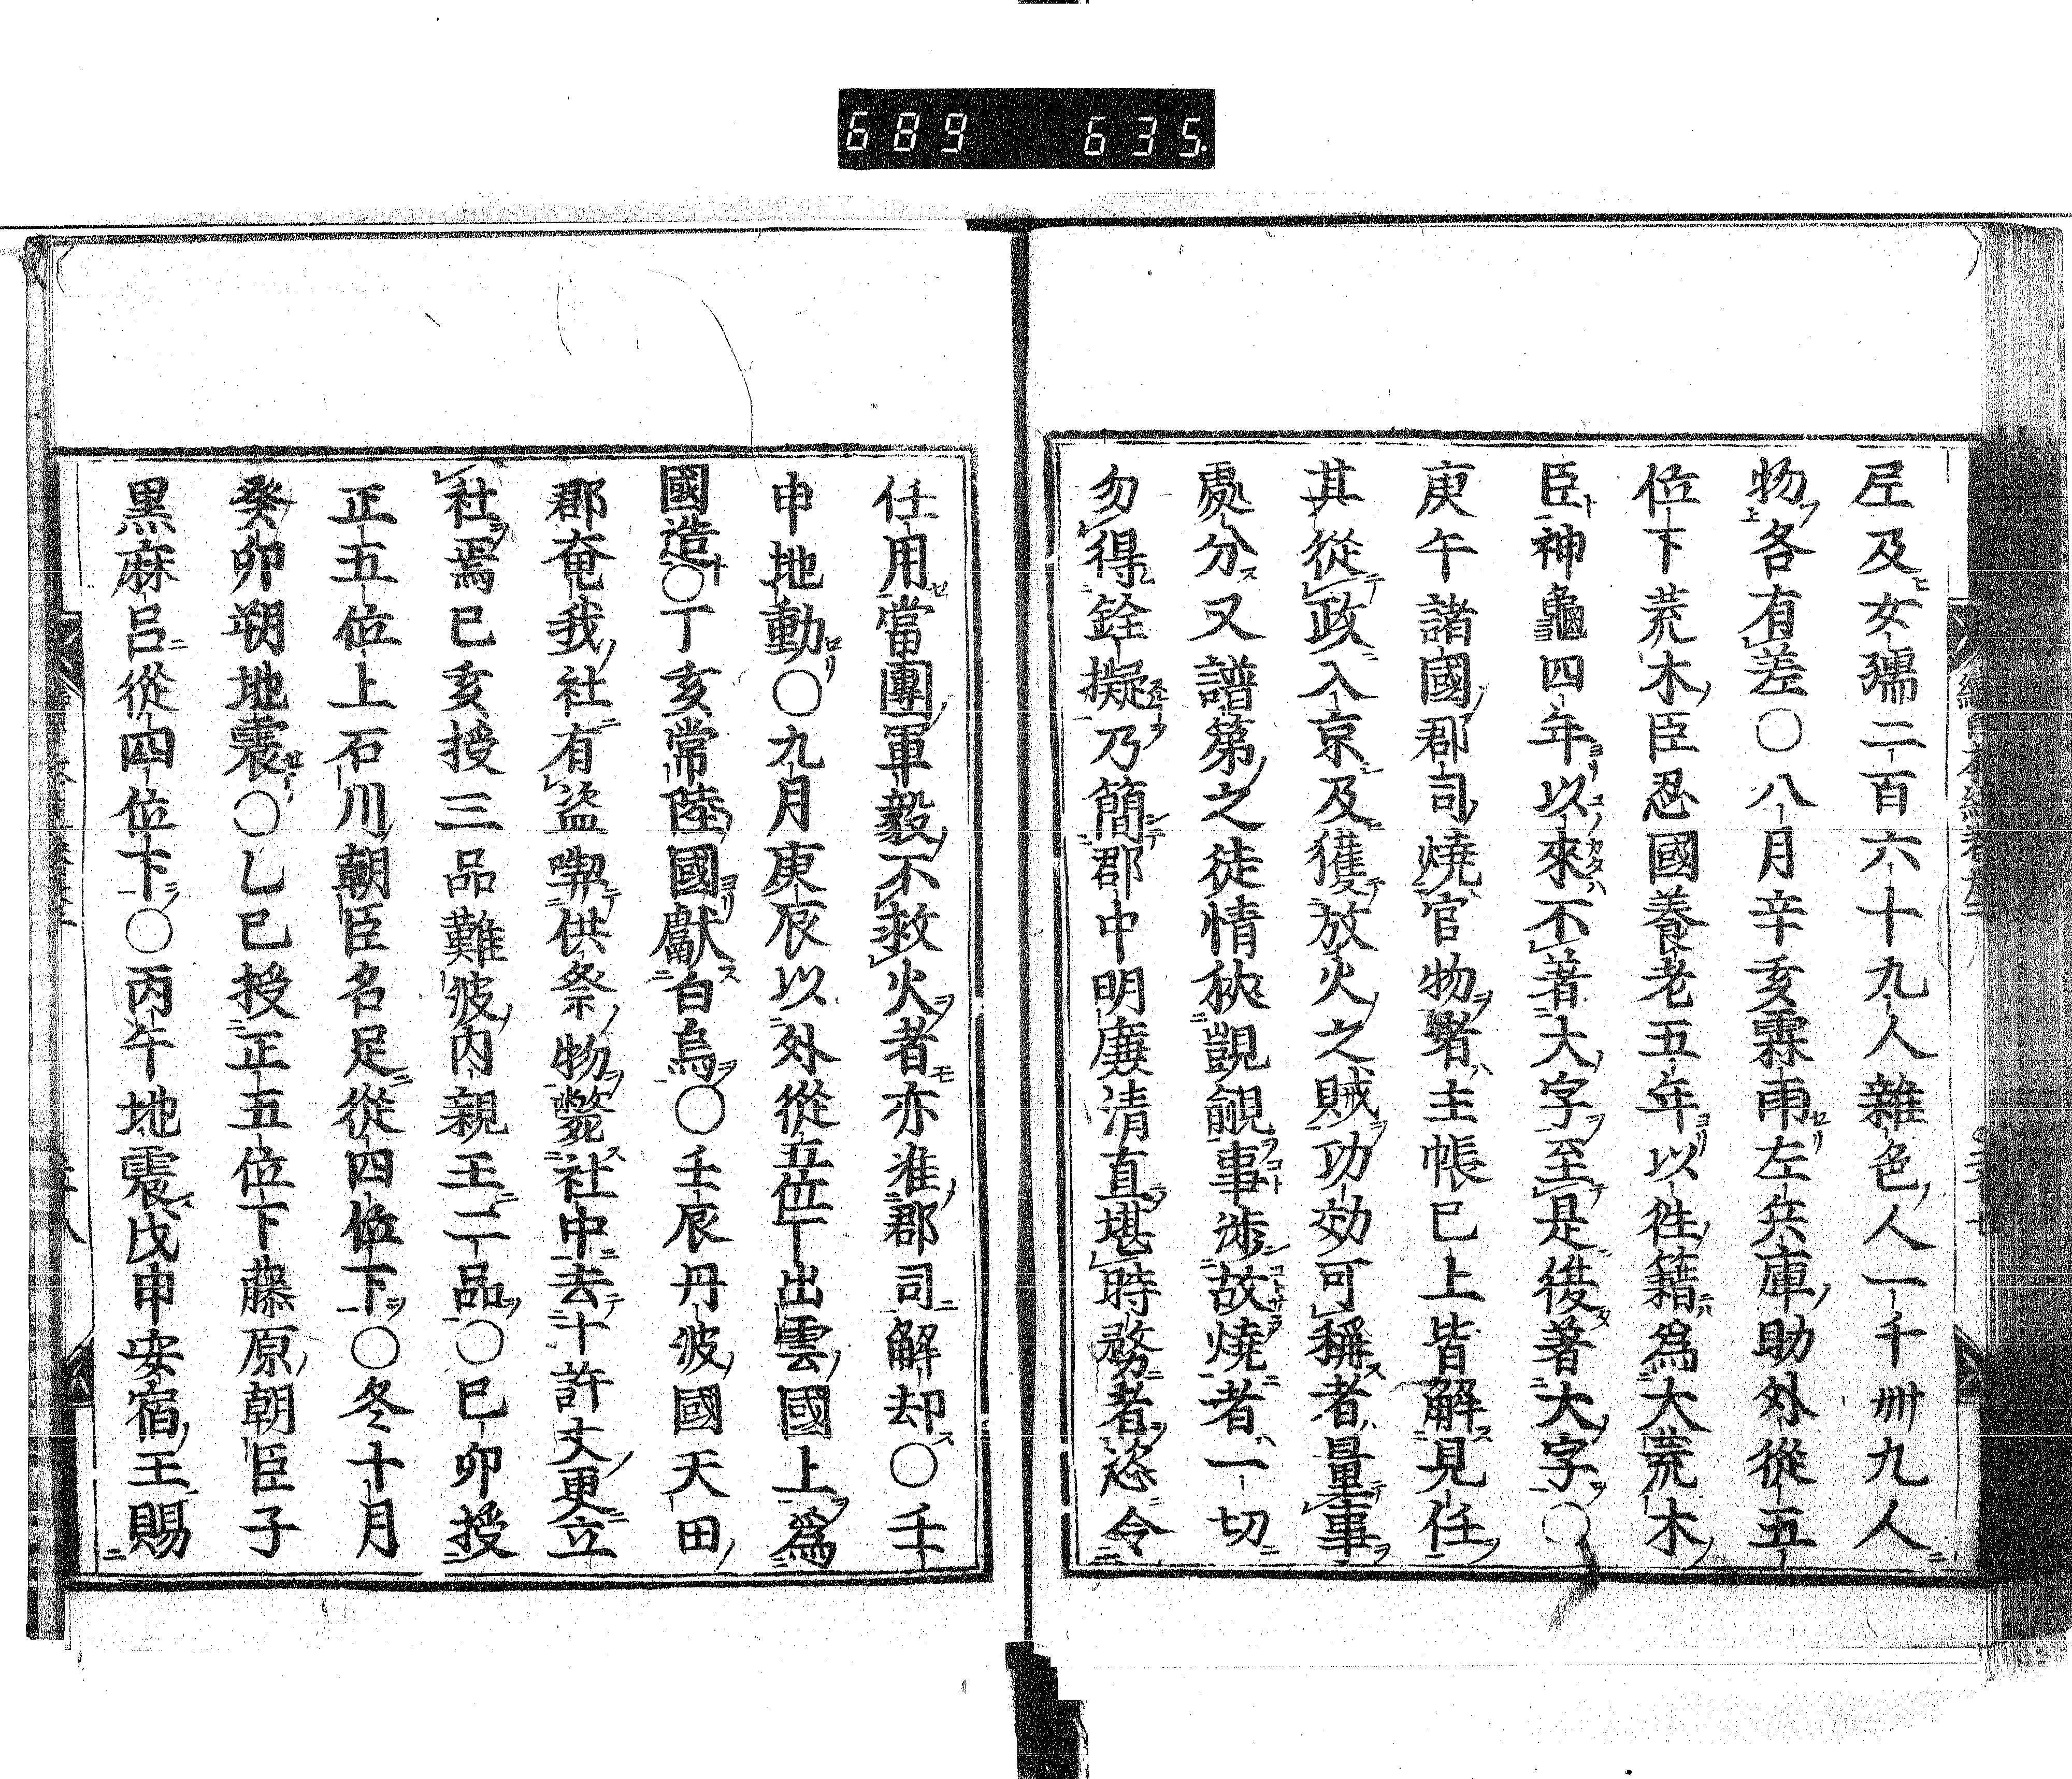 689 635
𡰱及女孺二百六十九人雜色人一千卌九人
物各有差○八月辛亥霖雨左兵庫助外從五
位下荒木臣忍國養老五年以徃籍爲大荒木
臣神龜四年以來不著大字至是復著大字○
庚午諸國郡司燒官物者主帳已上皆解見任
其從政入京及獲放火之賊功効可稱者量事
處分又譜第之徒情挾覬覦事渉故燒者一切
勿得銓擬乃簡郡中明廉清直堪時務者恣令
任用當團軍毅不救火者亦准郡司解却○壬
申地動○九月庚辰以外從五位下出雲國上爲
國造○丁亥常陸國獻白烏○壬辰丹波國天田
郡奄我社有盜喫供祭物斃社中去十許丈更立
社焉已亥授三品難波内親王二品○巳卯授
正五位上石川朝臣名足從四位下○冬十月
癸卯朔地震○乙巳授正五位下藤原朝臣子
黒麻呂從四位下○丙午地震戊申安宿王賜